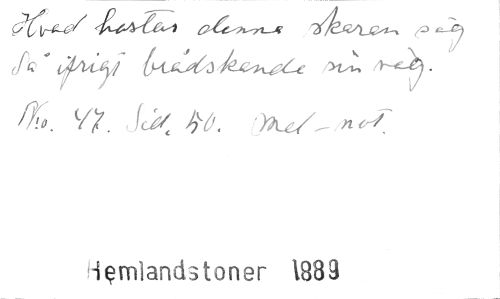 Hvad hastar denna skaran säg
Så ifrigt brådskande sin väg.
No. 47. Sid. 50. Mel-not.
Hemlandstoner 1889